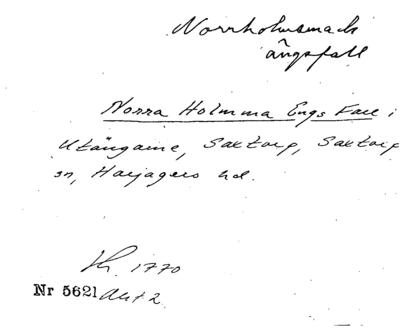 Norrholmsmack
ängsfall
Norra Holmma Engs Fall i
Utängarne, Saxtorp, Saxtorp
sn, Harjagers hd.
Lh. 1770
Nr 5621 Akt 2.